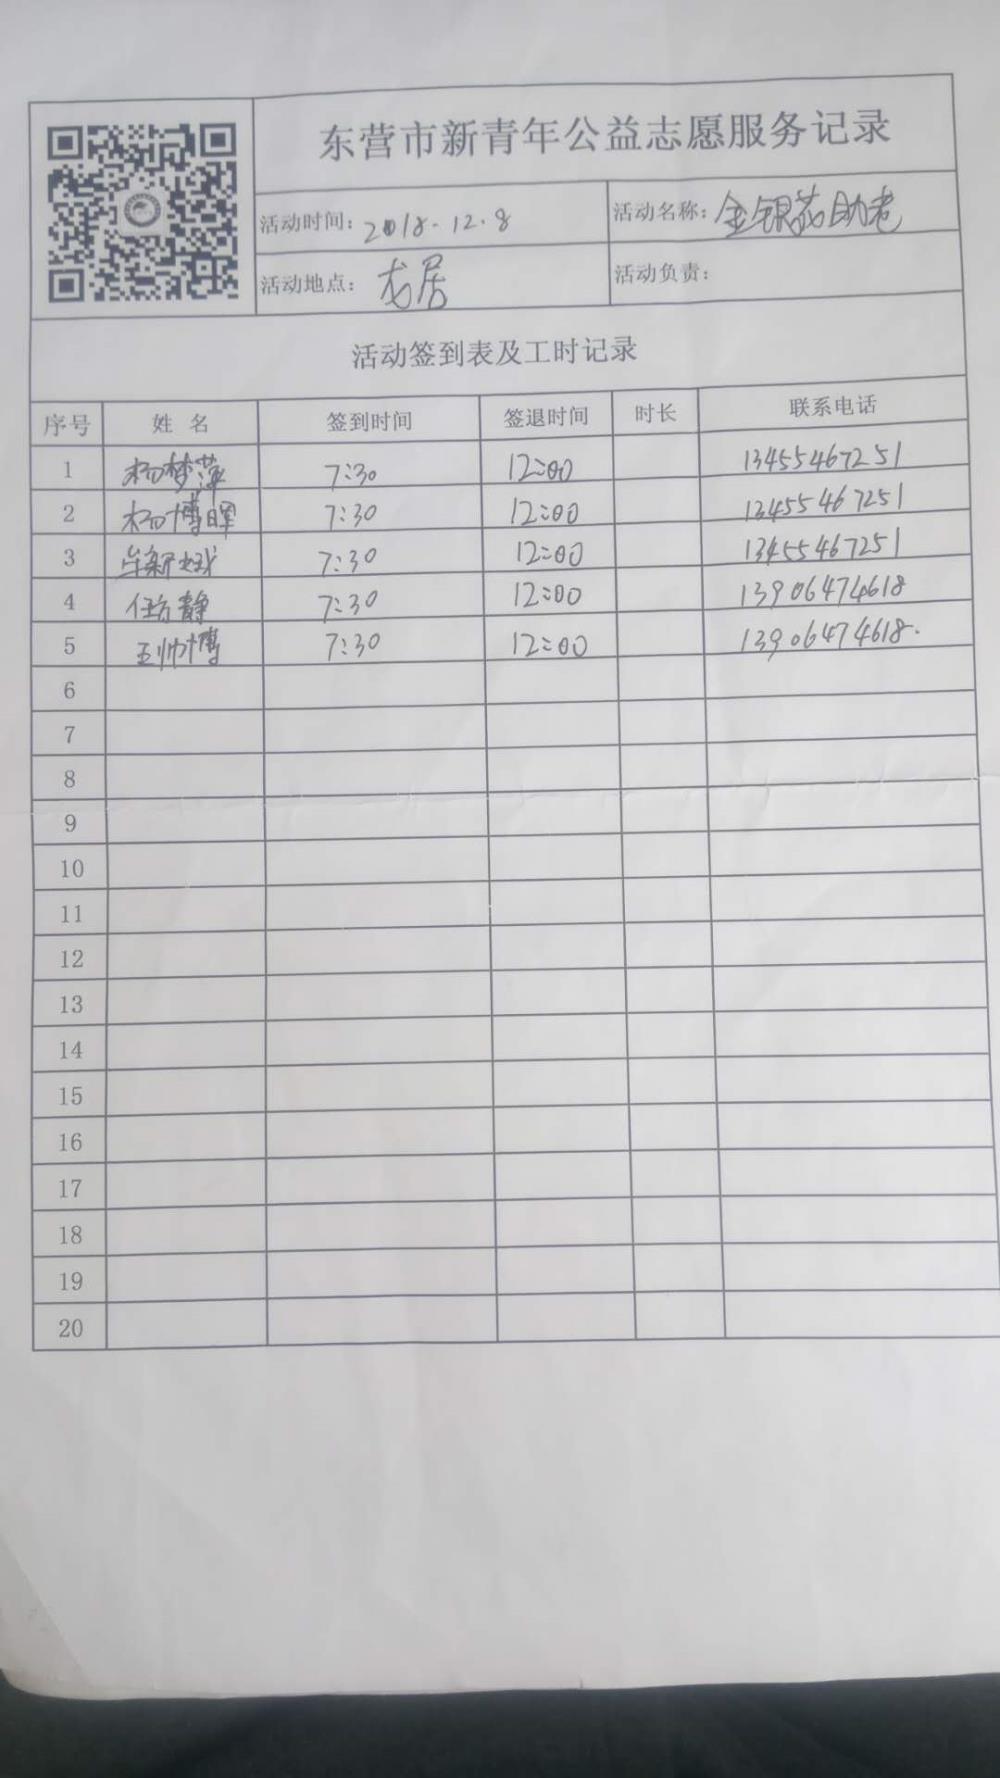 东营市新青年公益志愿服务记录
活动时间: 2018.12.8 活动名称: 金银花助老
活动地点: 龙居 活动负责:
活动签到表及工时记录
序号 姓 名 签到时间 签退时间 时长 联系电话
1 杨梦萍 7:30 12:00 13455467251
2 杨博晖 7:30 12:00 13455467251
3 7:30 12:00 13455467251
4 任方静 7:30 12:00 13906474618
5 王帅博 7:30 12:00 13906474618.
6
7
8
9
10
11
12
13
14
15
16
17
18
19
20